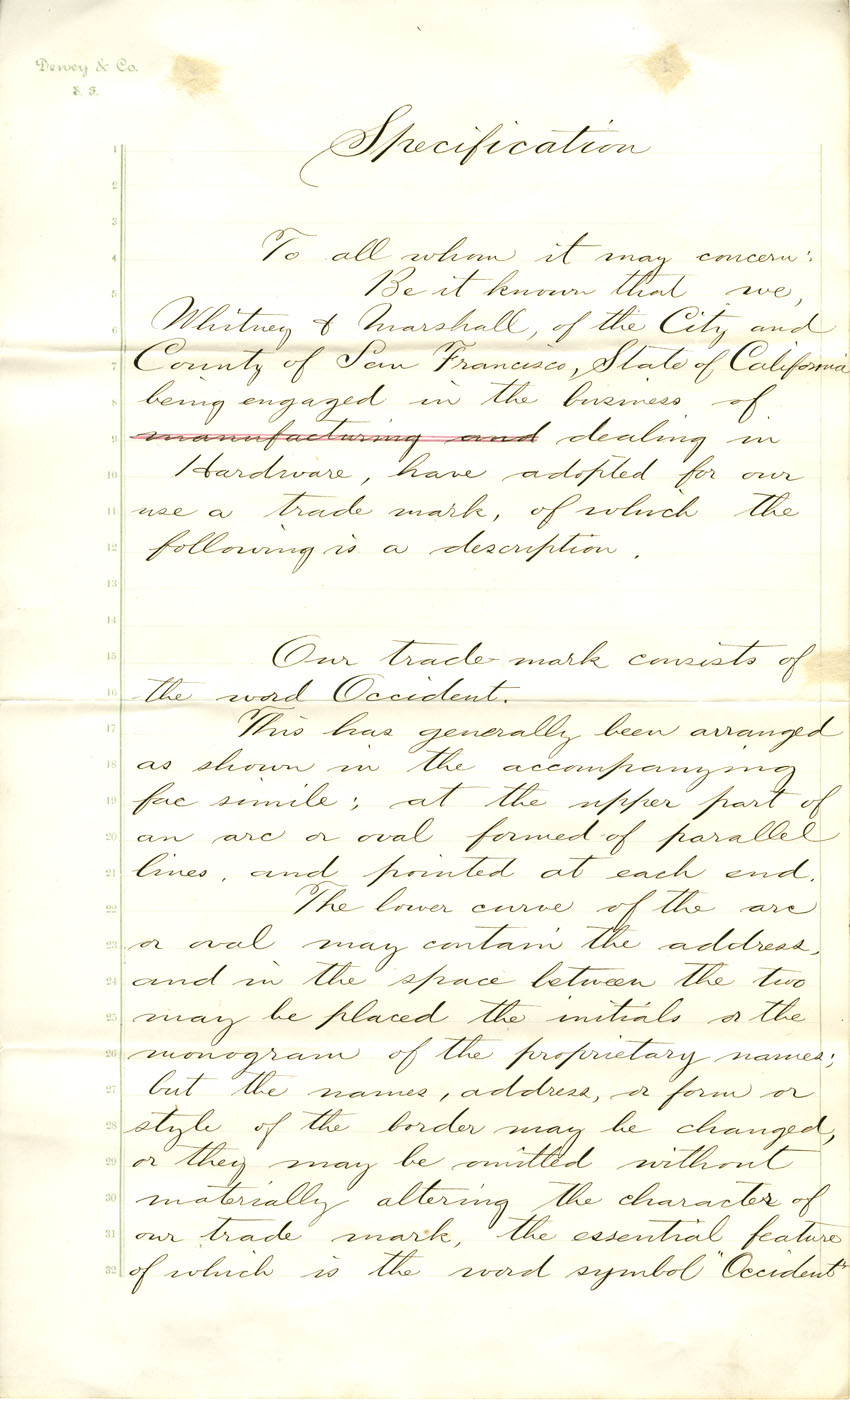 Dewey & Co.
S. F.
Specification
1
2
3
4 To all whom it may concern:
5 Be it known that we,
6 Whitney & Marshall, of the City and
7 County of San Francisco, State of California
8 being engaged in the business of
9 manufacturing and dealing in
10 Hardware, have adopted for our
11 use a trade mark, of which the
12 following is a description.
13
14
15 Our trade mark consists of
16 the word Occident.
17 This has generally been arranged
18 as shown in the accompanying
19 fac simile; at the upper part of
20 an arc or oval formed of parallel
21 lines, and pointed at each end.
22 The lower curve of the arc
23 or oval may contain the address,
24 and in the space between the two
25 may be placed the initials or the
26 monogram of the proprietary names;
27 but the names, address, or form or
28 style of the border may be changed,
29 or they may be omitted without
30 materially altering the character of
31 our trade mark, the essential feature
32 of which is the word symbol "Occident"